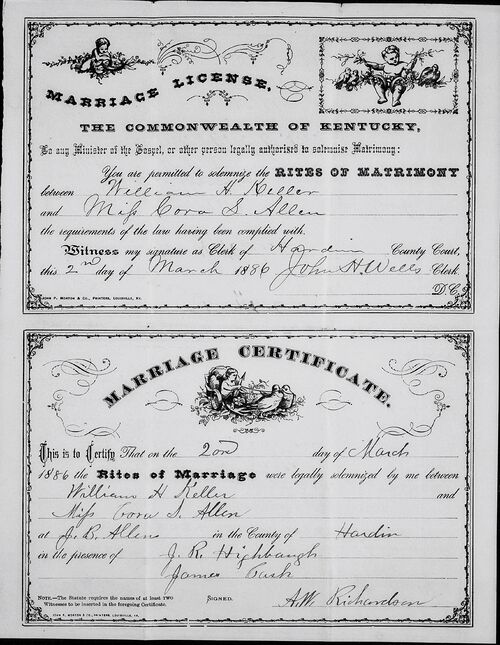 MARRIAGE LICENSE,
THE COMMONWEALTH OF KENTUCKY,
To any Minister of the Gospel, or other person legally authorised to solemnise Matrimony:
You are permitted to solemnize the RITES OF MATRIMONY
between William H. Keller
and Miss Cora S. Allen
the requirements of the law having been complied with.
Witness my signature as Clerk of Hardin County Court,
this 2nd day of March 1886 John H. Wells Clerk
D. C.
JOHN P. MORTON & CO., PRINTERS, LOUISVILLE, KY.
MARRIAGE CERTIFICATE.
This is to Certify That on the 2nd day of March
1886 the Rites of Marriage were legally solemnized by me between
William H Keller and
Miss Cora S. Allen
at J. B. Allens in the County of Hardin
in the presence of J. R. Highbaugh
James Cash
NOTE.—The Statute requires the names of at least TWO
Witnesses to be inserted in the foregoing Certificate.
SIGNED.
A. W. Richardson
JOHN P. MORTON & CO., PRINTERS, LOUISVILLE, KY.